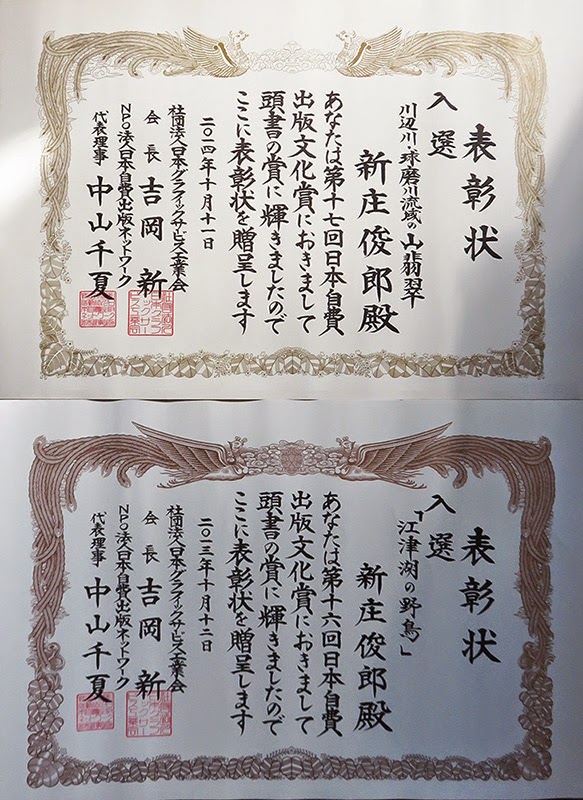 表彰状
入選
川辺川・球磨川流域の山翡翠
新庄俊郎殿
あなたは第十七回日本自費
出版文化賞におきまして
頭書の賞に輝きましたので
ここに表彰状を贈呈します
二〇一四年十月十一日
社団法人日本グラフィックサービス工業会
会長 吉岡新
NPO法人日本自費出版ネットワーク
代表理事 中山千夏
表彰状
入選
「江津湖の野鳥」
新庄俊郎殿
あなたは第十六回日本自費
出版文化賞におきまして
頭書の賞に輝きましたので
ここに表彰状を贈呈します
二〇一三年十月十二日
社団法人日本グラフィックサービス工業会
会長 吉岡新
NPO法人日本自費出版ネットワーク
代表理事 中山千夏